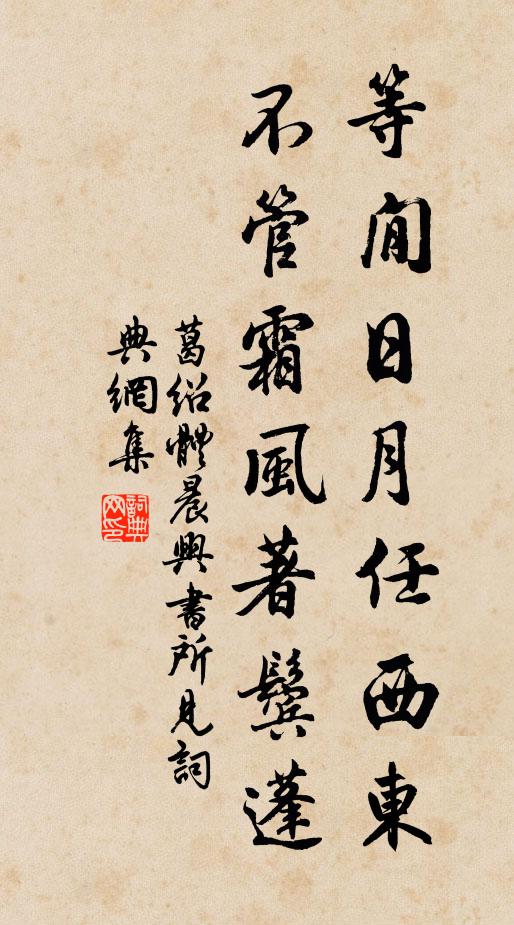 等閒日月任西東
不管霜風著鬢蓬
葛紹體晨興書所見詞
典網集
詞典
网印